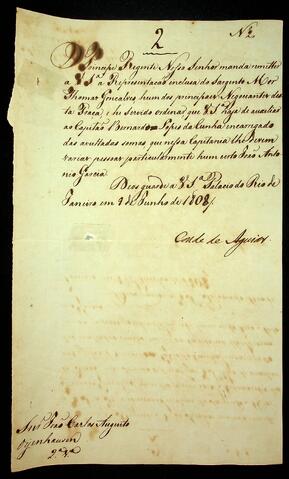 2
N.2
O Principe Regente Nosso Senhor manda remetter
a V S.ª a Representaçaõ inclusa do Sargento Mor
Thomas Gonçalves hum dos principaes Negociantes des
ta Praça; e he servido ordenar que V S.ª haja de auxiliar
ao Capitaõ Bernardo Lopes da Cunha encarregado
das avultadas somas que nessa Capitania lhe devem
varias pessoas particularmente hum certo Joaõ Anto
nio Garcia.
Deos guarde a V S.ª Palacio do Rio de
Janeiro em de Junho de 1808
Conde de Aguiar
Snr. Joaõ Carlos Augusto
Oyenhausen